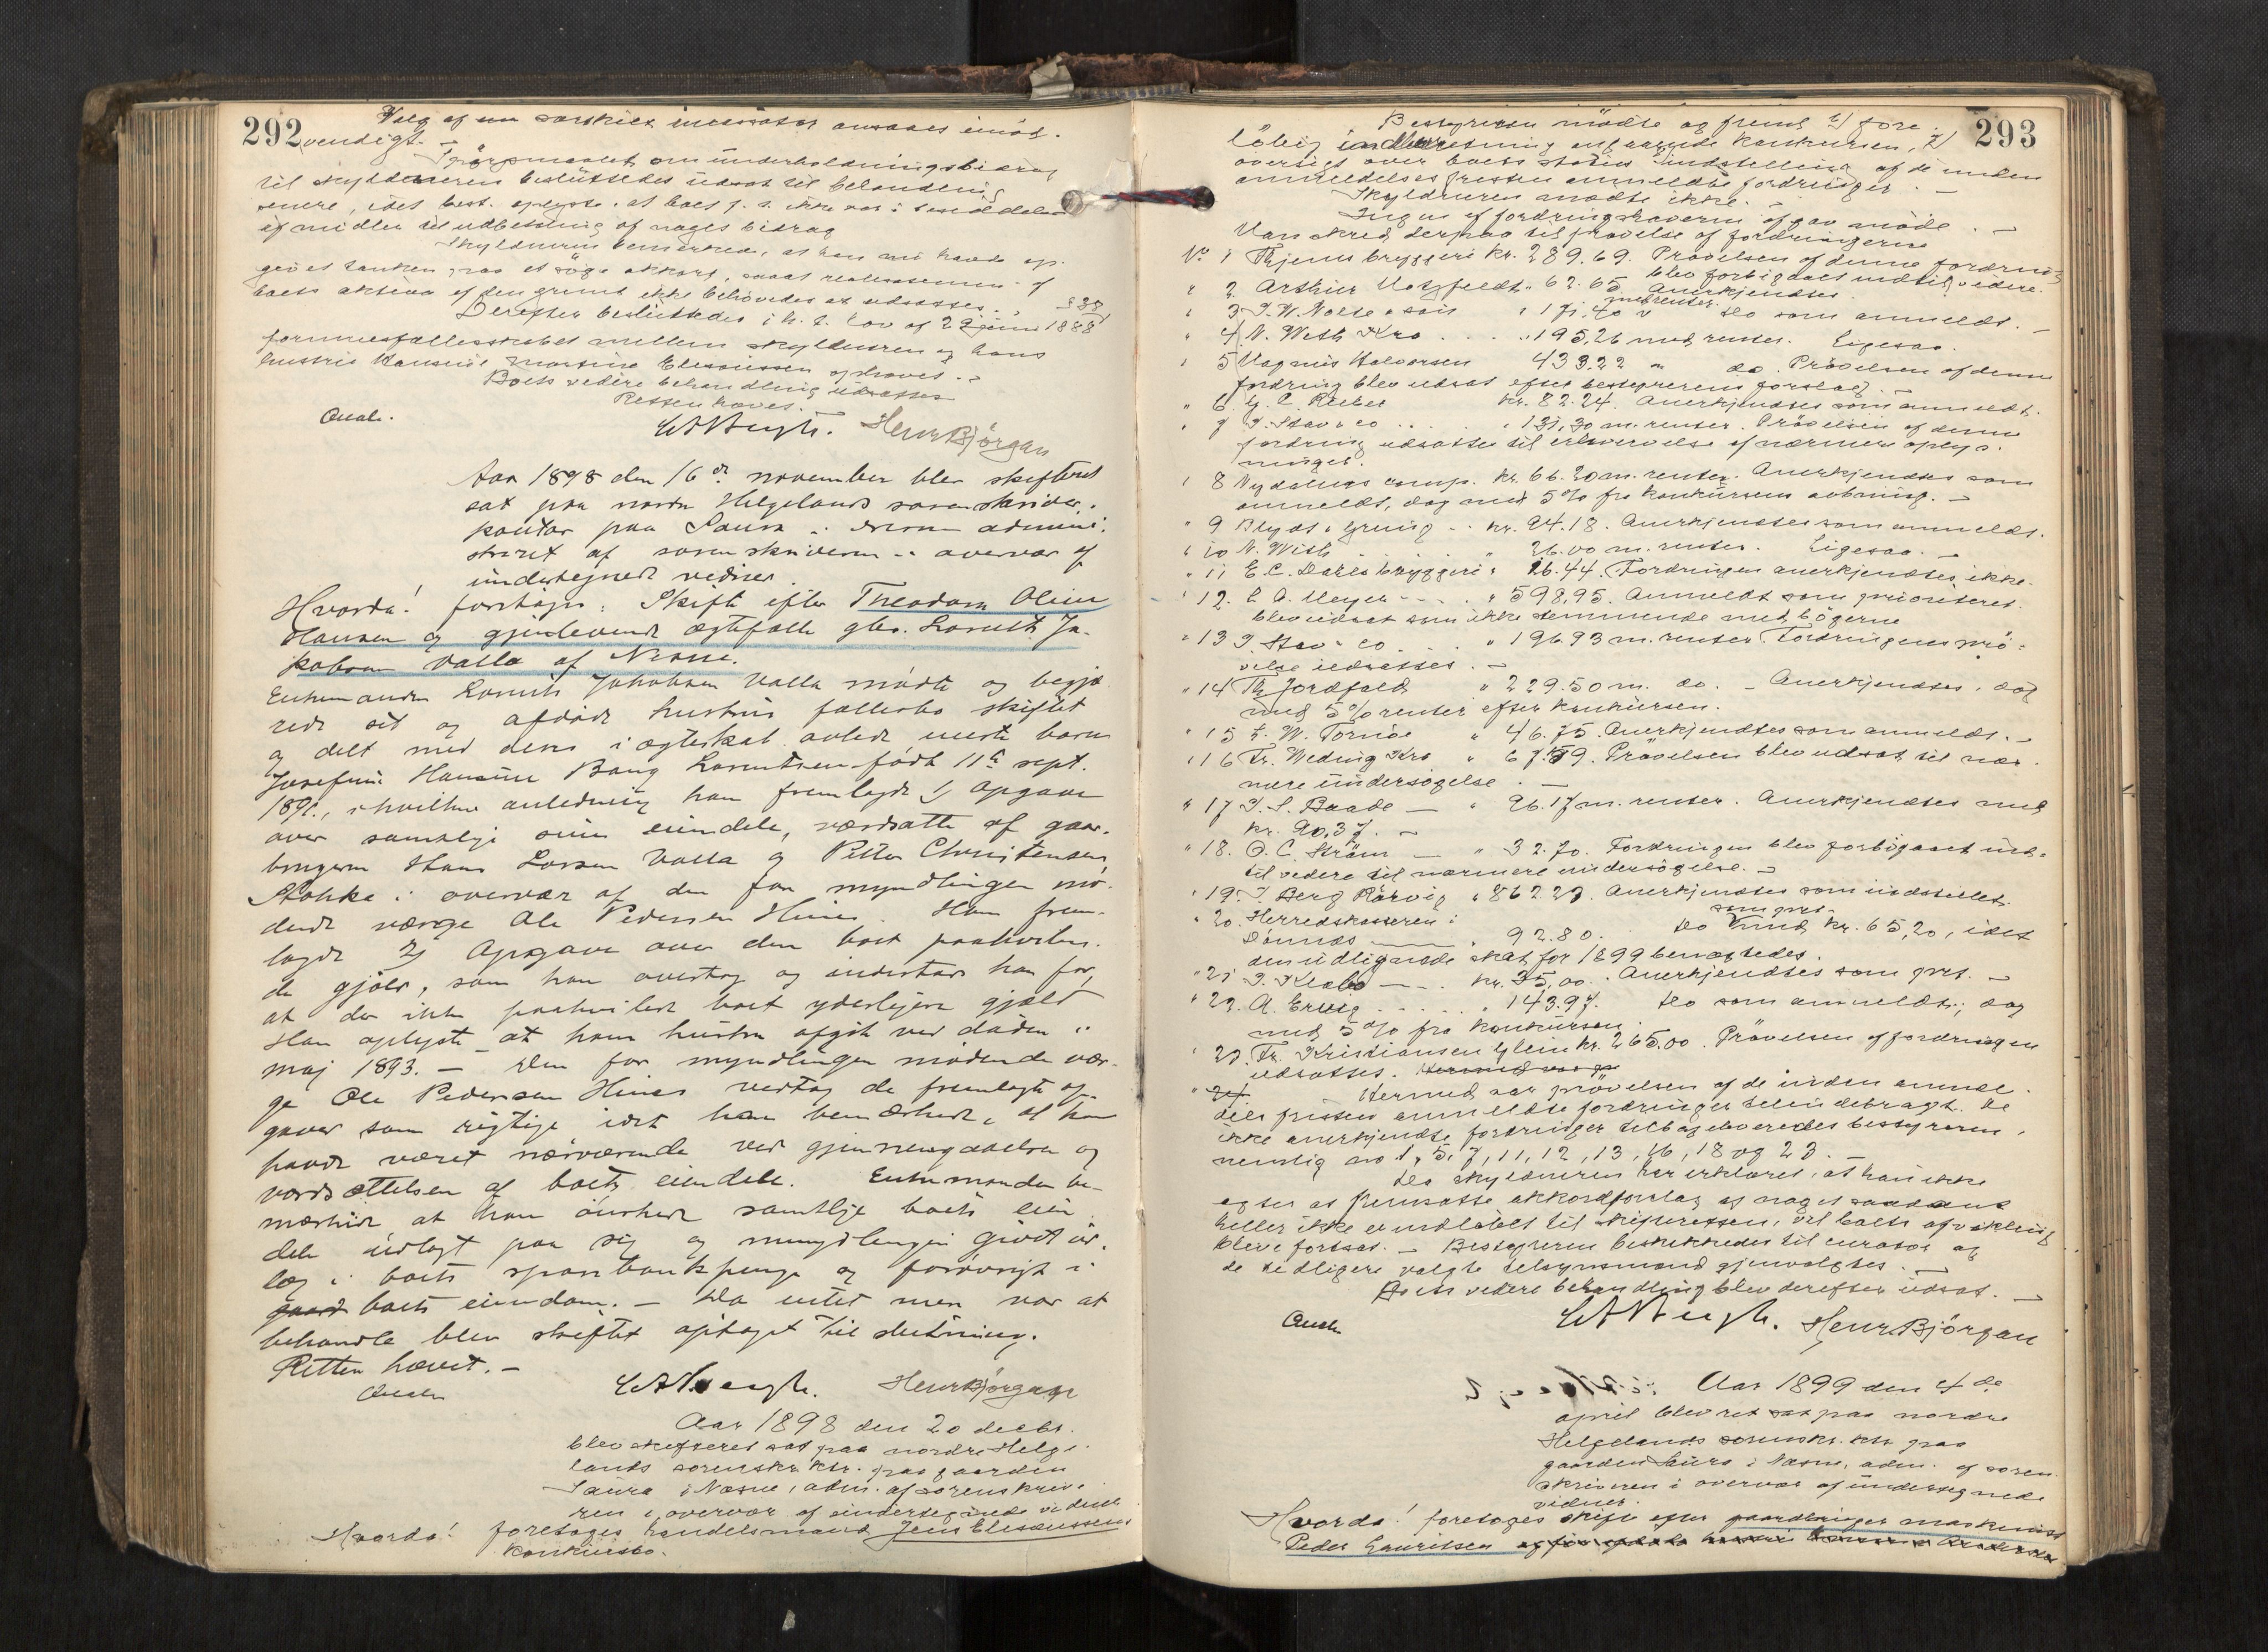 292
Valg af en særskilt incasator ansaaes unød-
vendigt. —
Spørgsmaalet om underholdningsbidrag
til skyldneren besluttedes udsat til behandling
senere, idet best. oplyste, at boet f. t. ikke var i besiddelse
af midler til udbetaling af noget bidrag
Skyldneren bemerkede, at han nu havde op-
givet tanken paa at søge akkord, saaat realisationen af
boets aktiva af den grund ikke behøvedes at udsættes.
Derefter besluttedes i h. t. lov af 29 juni 1888 § 38
formuesfællesskabet mellem skyldneren og hans
hustru Hansine Martine Eleseussen ophævet. —
Boets videre behandling udsattes
Retten hævet. —
Henr Bjørgan
Aar 1898 den 16de november blev skifteret
sat paa nordre Helgelands sorenskriver-
kontor paa Saura i Nesne admini-
streret af sorenskriveren i overvær af
undertegnede vidner.
Hvorda! foretoges: Skifte efter Theodora Oline
Hansen og gjenlevende ægtefælle gbr. Lorents Ja-
kobsen Valla af Nesne.
Enkemanden Lorents Jakobsen Valla mødte og begjæ-
rede sit og afdøde hustrus fællesbo skiftet
og delt med deres i ægteskab avlede eneste barn
Josefine Hansine Bang Lorentsen født 11te sept.
1891, i hvilken anledning han fremlagde 1) Opgave
over samtlige sine eiendele, værdsatte af gaar-
brugerne Hans Larsen Valla og Petter Christensen
Stokka i overvær af den for myndlingen mø-
dende værge Ole Pedersen Hinæs. Han frem-
lagde 2) Opgave over den boet paahvilen-
de gjæld, som han overtog og indestaar han for,
at der ikke paahviler boet yderligere gjæld
Han oplyste at hans hustru afgik ved døden i
maj 1893. — Den for myndlingen mødende vær-
ge Ole Pedersen Hinæs vedtog de fremlagte op-
gaver som rigtige idet han bemærkede, at han
havde været nærværende ved gjennemgaaelsen og
værdsættelsen af boets eiendele. Enkemanden be-
mærkede at han ønskede samtlige boets eien-
dele udlagt paa sig og myndlingen givet ud-
læg i boets sparebankpenge og forøvrigt i
gaard boets eiendom. — Da intet mer var at
behandle blev skiftet optaget til slutning.
Retten hævet. —
Henr Bjørgan
Aar 1898 den 20 decbr.
blev skifteret sat paa nordre Helge-
lands sorenskr. ktr. paa gaarden
Saura i Nesne, adm. af sorenskrive-
ren i overvær af undertegnede vidner
Hvorda! foretoges handelsmand Jens Eleseussens
konkursbo.
293
Bestyreren mødte og freml. 1) fore-
løbig indberetning angaaende konkursen, 2)
oversigt over boets status indstilling af de inden
anmeldelsesfristen anmeldte fordringer. —
Skyldneren mødte ikke. —
Ingen af fordringshaverne afgav møde. —
Man skred derpaa til prøvelse af fordringerne
No 1 Tjems bryggeri kr. 289.69. Prøvelsen af denne fordring
blev forbigaaet indtil videre.
" 2 Arthur Motzfeldt " 62.65 Anerkjendtes.
" 3 J. W. Nolte & søn " 171.40 med renter do som anmeldt. —
" 4 N. With Kro . . . " 195,26 med renter. Ligesaa.
" 5 Magnus Halvorsen 433.22 " do. Prøvelsen af denne
fordring blev udsat efter bestyrerens forslag. —
" 6 G. C. Rieber kr. 82.24. Anerkjendtes som anmeldt.
" 7 J. Stav & co . . . " 131,30 m. renter. Prøvelsen af denne
fordring udsattes til erhvervelse af nærmere oplys-
ninger.
" 8 Nydalens comp. kr. 66.20 m. renter. Anerkjendtes som
anmeldt, dog med 5% fra konkursens aabning. —
" 9 Blydt & Gruing . . kr. 94.18. Anerkjendtes som anmeldt.
" 10 N. With . . . . " 26.00 m. renter. Ligesaa. —
" 11 E. C. Dahls bryggeri " 26.44. Fordringen anerkjendtes ikke.
" 12. C. A. Meyer . . . " 598,95. Anmeldt som prioriteret.
blev udsat som ikke stemmende med bøgerne
" 13 J. Stav & co . . . " 196.93 m. renter. Fordringens prø-
velse udsattes. —
" 14 Th. Jordfald " 229.50 m. do. — Anerkjendtes, dog
med 5% renter efter konkursen.
" 15 E. W. Tornøe " 46.75. Anerkjendtes som anmeldt. —
" 16 Fr. Meding Kro " 67.59. Prøvelsen blev udsat til nær-
mere undersøgelse. —
" 17 J. S. Baade — " 96.17 m. renter. Anerkjendtes med
kr. 90,37. —
" 18. O. C. Strøm — " 32.70. Fordringen blev forbigaaet ind-
til videre til nærmere undersøgelse. —
" 19. J Berg Rørvig " 862 27. Anerkjendtes som indstillet.
" 20. Herredskassereren i
Dønnes — " 92.80. do som pret. kun kr. 65,20, idet
den udlignede skat for 1899 benægtedes.
" 21 J. Klæbo — . . kr. 35,00. Anerkjendtes som pret. —
" 22. A. Ervig . . . . . " 143.97. do som anmeldt; dog
med 5% fra konkursen.
" 23. Fr. Kristiansen Glein kr. 265.00. Prøvelsen af fordringen
udsattes.
" 24. Hermed var prøvelsen af de inden anmel-
delsfristen anmeldte fordringer tilendebragt. De
ikke anerkjendte fordringer tilbageleveredes bestyreren,
nemlig no 1, 5, 7, 11, 12, 13, 16, 18 og 23. —
Da skyldneren har erklæret, at han ikke
agter at fremsætte akkordforslag og noget saadant
heller ikke er indløbet til skifteretten, vil boets afvikling
blive fortsat. — Bestyreren beskikkedes til curator og
de tidligere valgte tilsynsmænd gjenvalgtes. —
Boets videre behandling blev derefter udsat. —
Henr Bjørgan
Aar 1899 den 4de
april blev ret sat paa nordre
Helgelands sorenskr. ktr. paa
gaarden Saura i Nesne, adm. af soren-
skriveren i overvær af undertegnede
vidner.
Hvorda! foretoges skifte efter gaardbruger maskinist
Peder Lauritsen